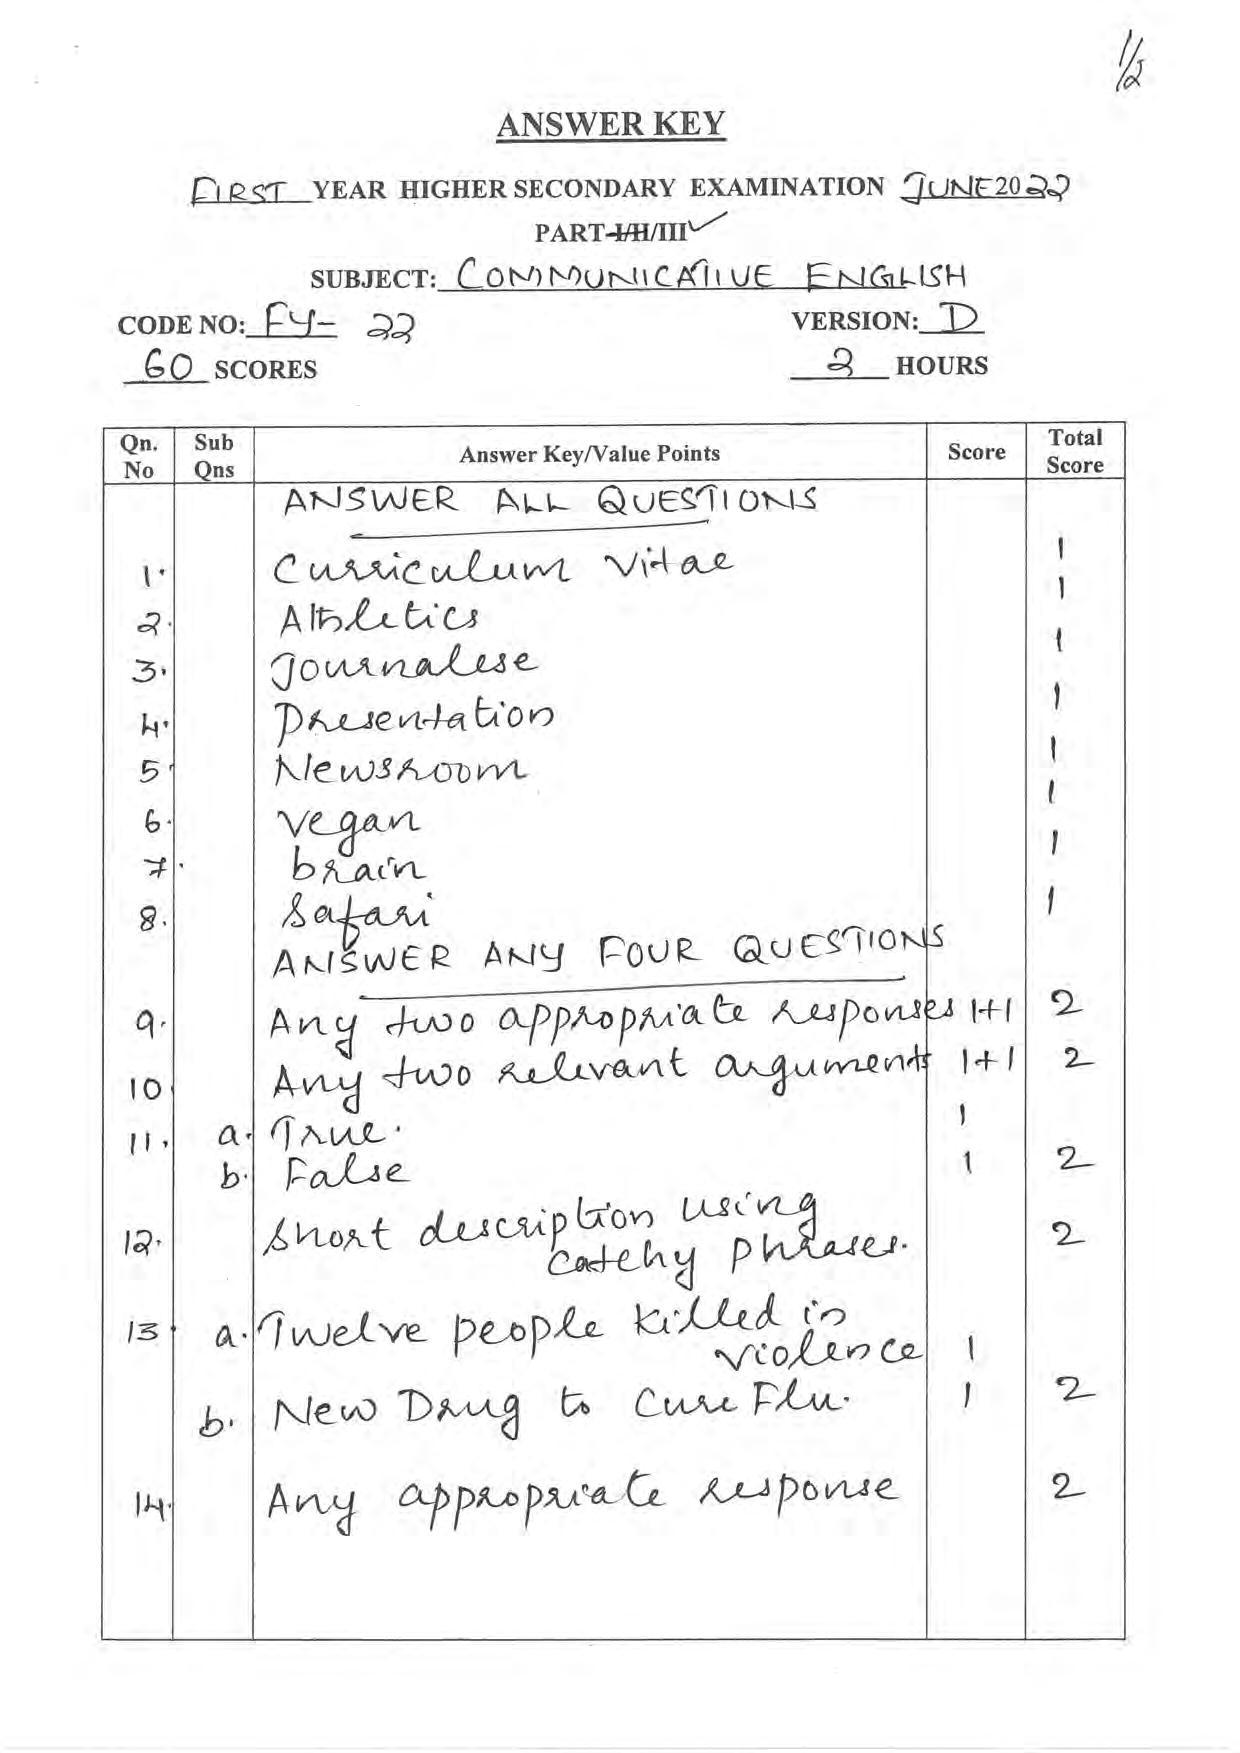 1/2
ANSWER KEY
FIRST YEAR HIGHER SECONDARY EXAMINATION JUNE 2022
PART-I/II/III ✓
SUBJECT: COMMUNICATIVE ENGLISH
CODE NO: FY- 22 VERSION: D
60 SCORES 2 HOURS
Qn. No Sub Qns Answer Key/Value Points Score Total Score
ANSWER ALL QUESTIONS
1. Curriculum Vitae 1
2. Athletics 1
3. Journalese 1
4. Presentation 1
5. Newsroom 1
6. Vegan 1
7. brain 1
8. Safari 1
ANSWER ANY FOUR QUESTIONS
9. Any two appropriate responses 1+1 2
10 Any two relevant arguments 1+1 2
11. a. True. 1
b. False 1 2
12. Short description using
catchy phrases. 2
13. a. Twelve people killed in
violence 1
b. New Drug to Cure Flu. 1 2
14. Any appropriate response 2